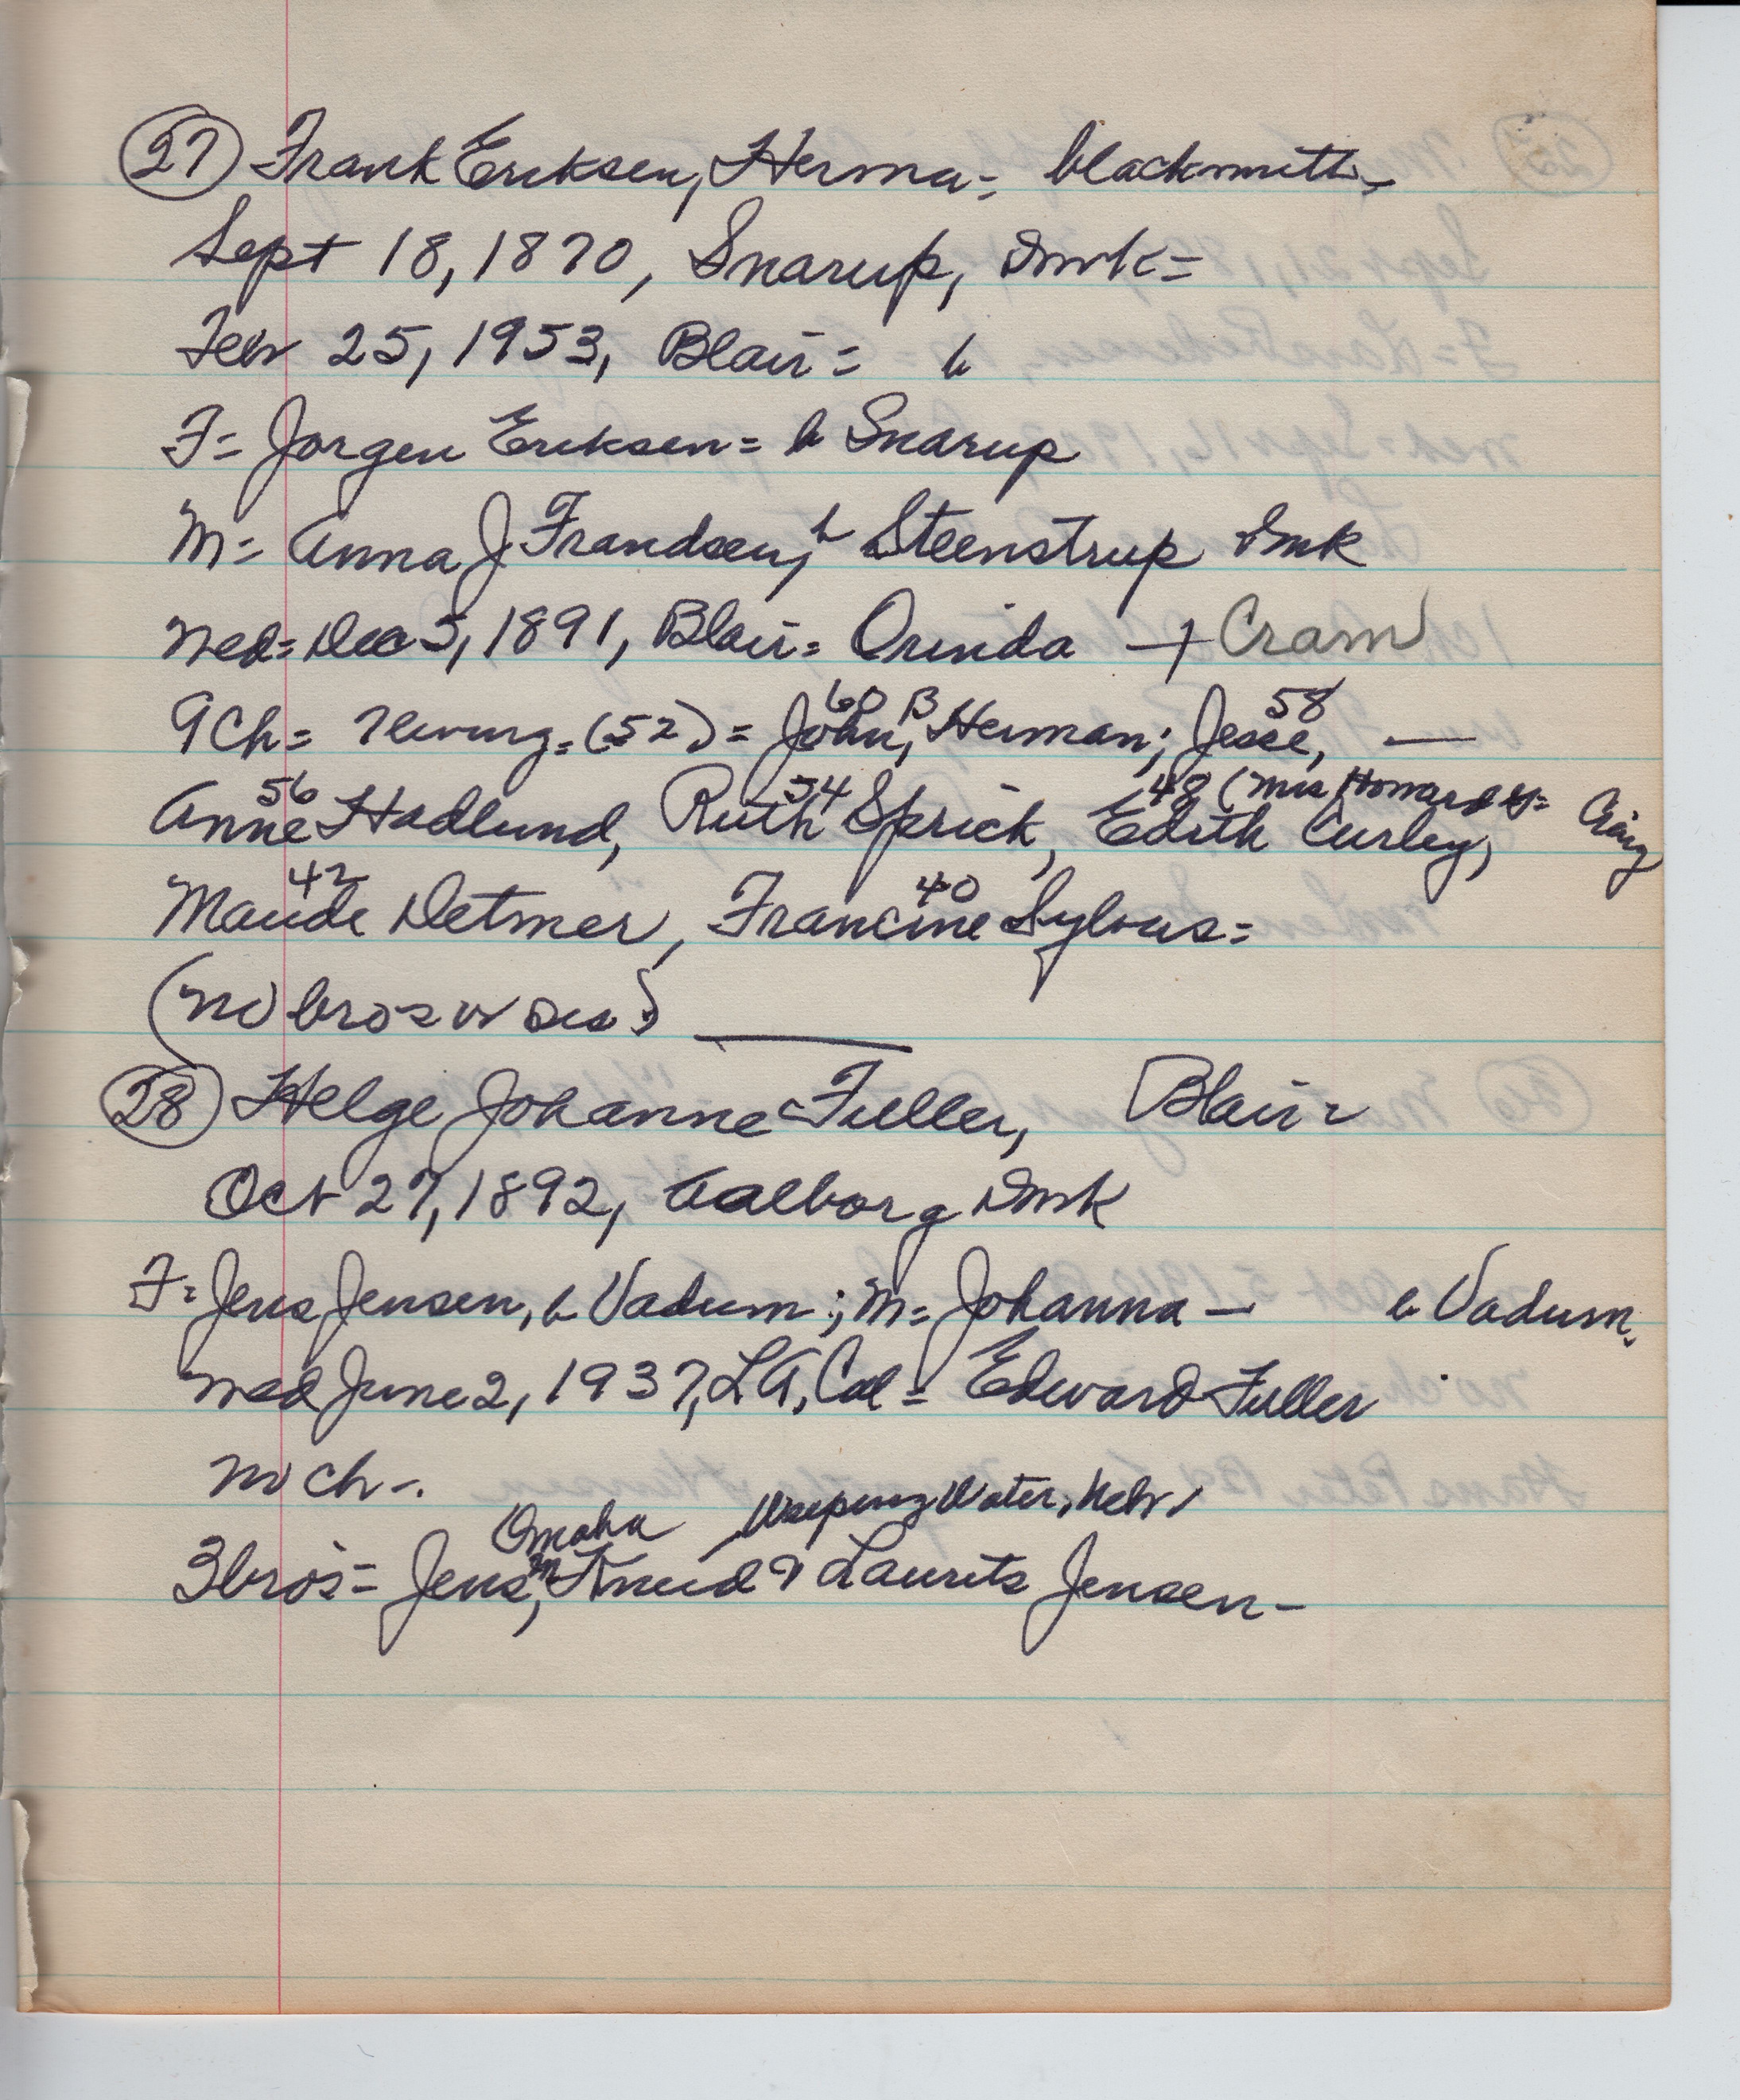 27 Frank Eriksen, Herman = blacksmith -
Sept 18, 1870, Snarup, Dmk =
Feb 25, 1953, Blair = b
F = Jorgen Eriksen = b Snarup
M = Anna J Frandsen, b Steenstrup Dmk
med = Dec 5, 1891, Blair = Orinda + Cram
9 Ch = living = (52) = John, 60 B Herman; Jesse, 58 —
Anne 56 Hadlund, Ruth 54 Sprick, Edith Curley, 48 (Mrs Howard = Craig
Maude 42 Detmer, Francine 40 Sylvus =
(no bros or sis)
28 Helge Johanne Fuller, Blair =
Oct 27, 1892, Aalborg Dmk
F = Jens Jensen, b Vadum; M = Johanna - b Vadum.
med June 2, 1937, LA, Cal = Edward Fuller
no ch -.
Omaha Weeping Water, Nebr
3 bros = Jens, Knud & Laurits Jensen -